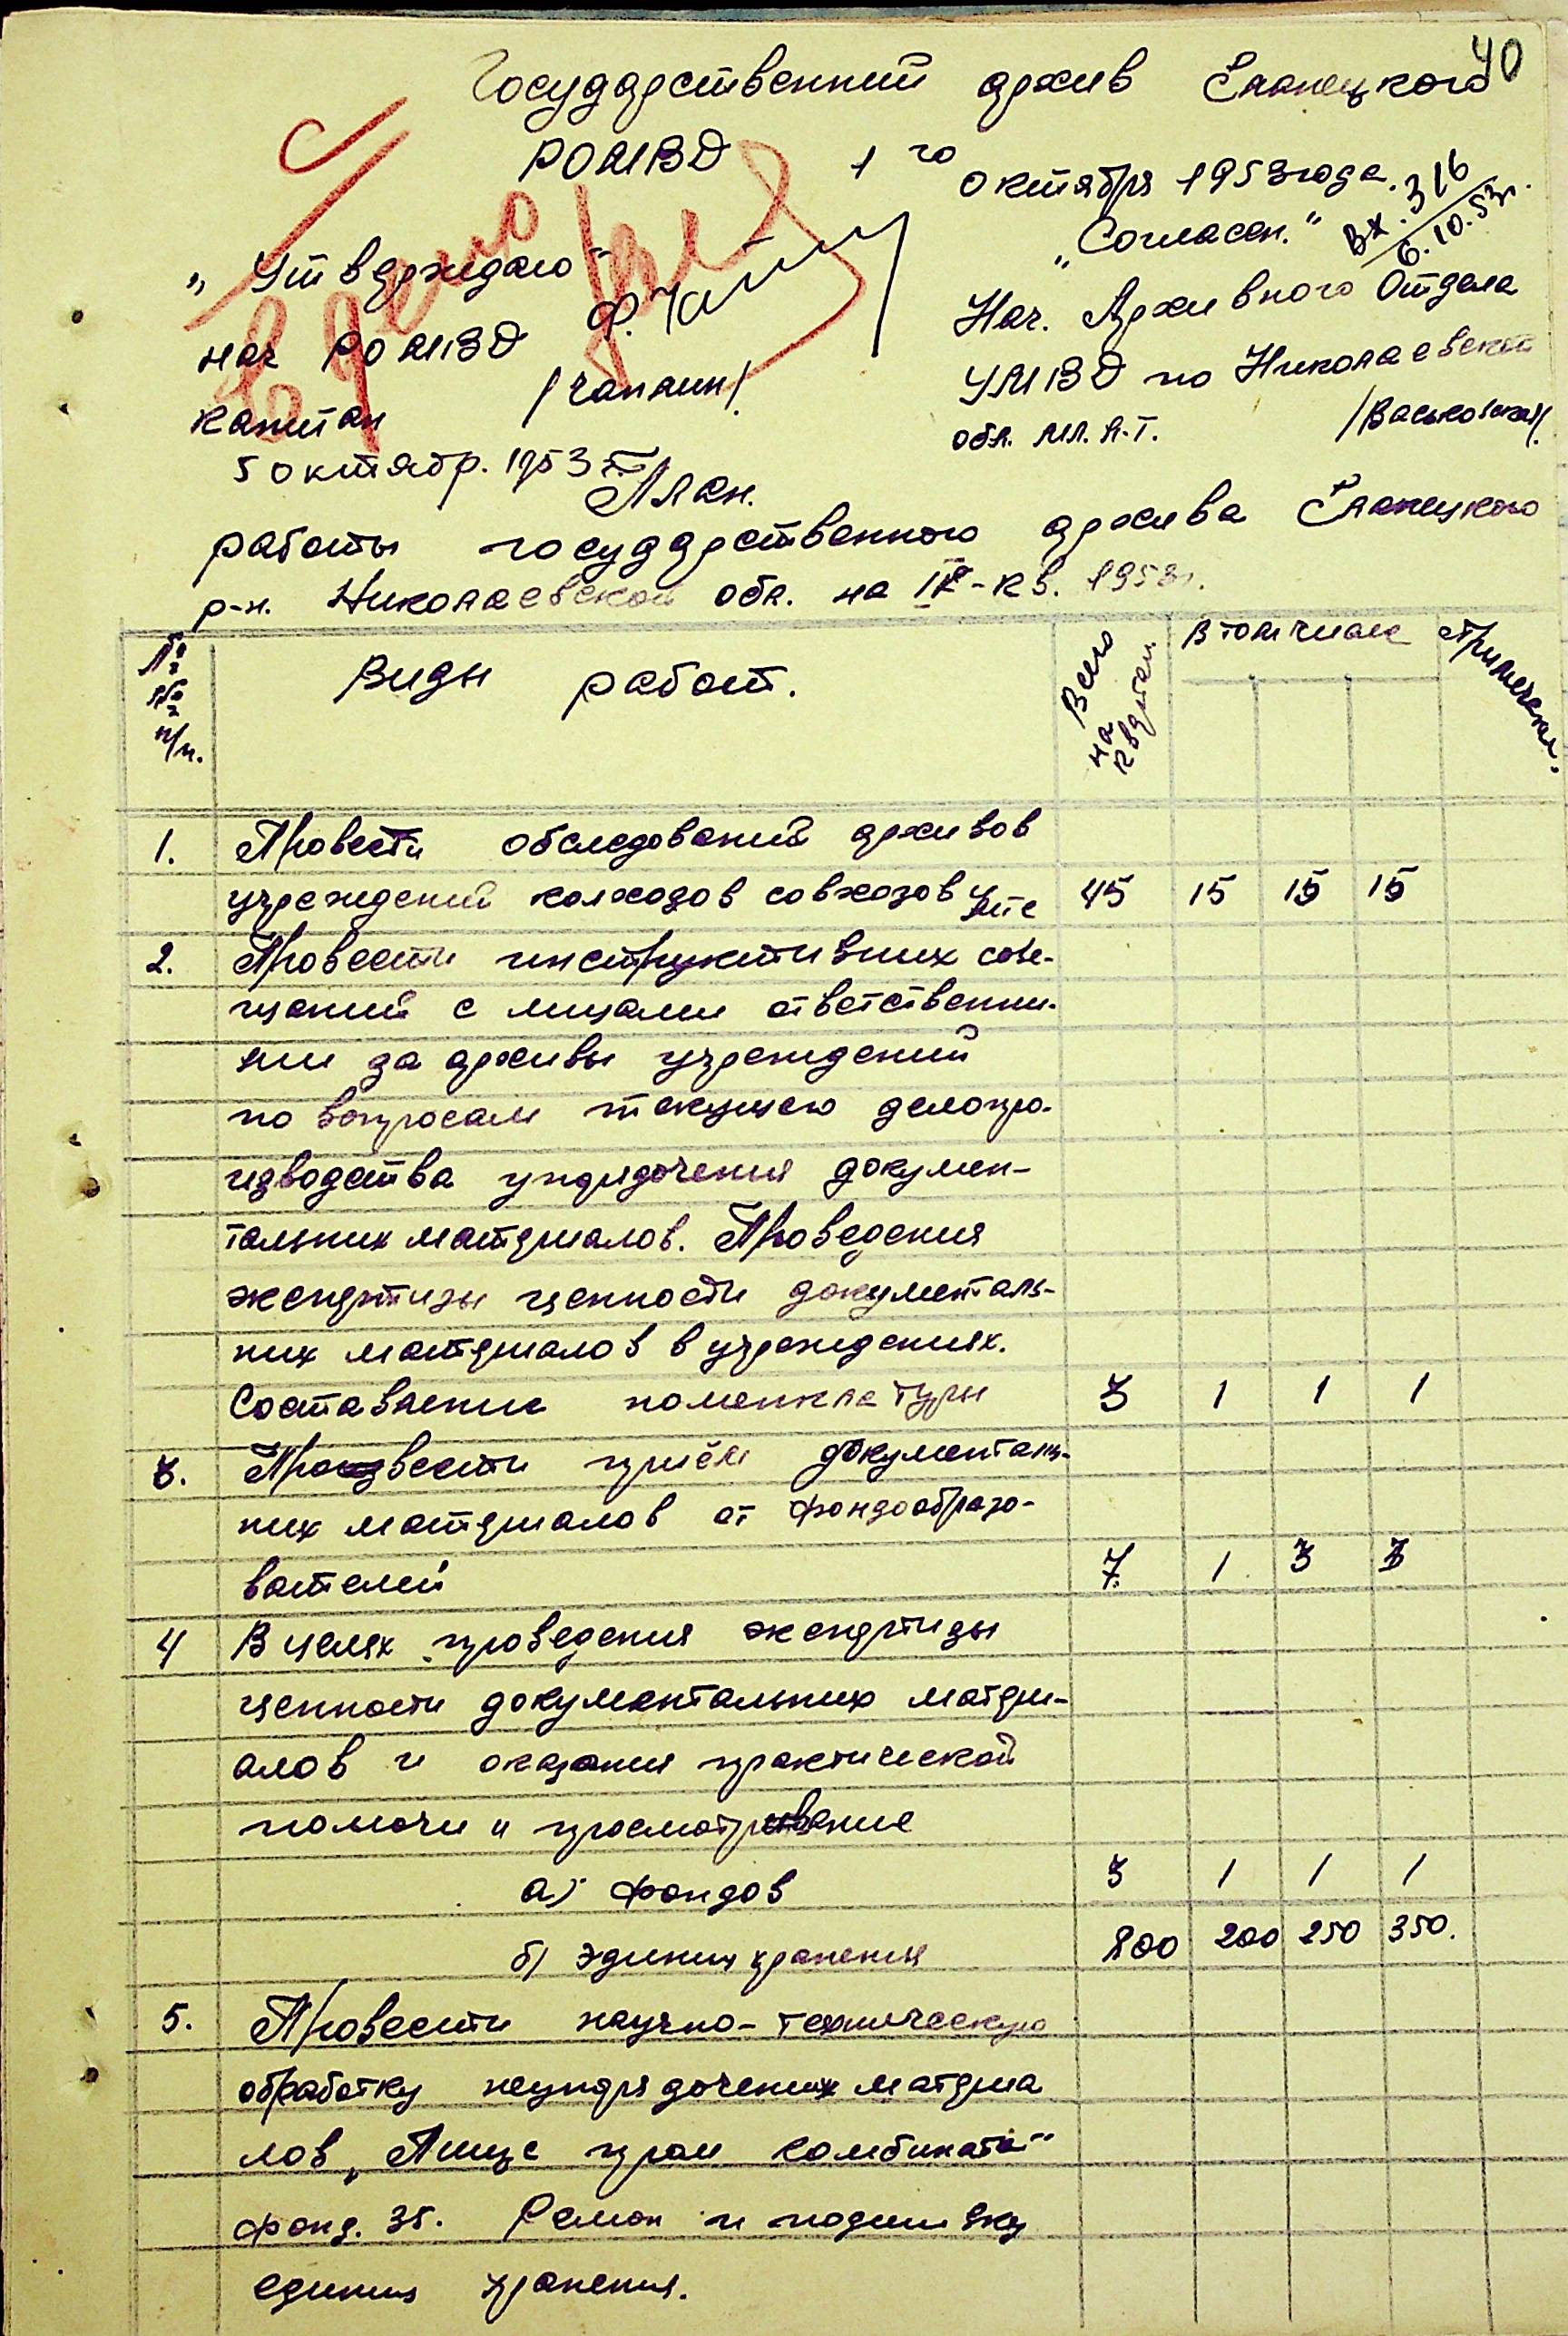 40
Государственний архив Еланецкого
РОМВД 1го октября 1953 года.
Вх. 316
6.10.53г.
„Утверждаю“
нач РОМВД
капитан /Чаплин/
5 октябр. 1953 г.
„Согласен.“
Нач. Архивного Отдела
УМВД по Николаевской
обл. мл. л-т. /Васьковская/.
План.
работы государственного архива Еланецкого
р-н. Николаевской обл. на IV-кв. 1953г.
№ № п/п. Виды работ. Всего на квартал В том числе Примечания.
1. Провести обследований архивов
учреждений колхозов совхозов МТС 45 15 15 15
2. Провести инструктивних сове-
щаний с лицами ответственни-
ми за архивы учреждений
по вопросам текущего делопро-
изводства упорядочения докумен-
тальних материалов. Проведения
экспертизы ценности документаль-
них материалов в учреждениях.
Составление номенклатуры 3 1 1 1
3. Произвести приём документаль-
них материалов от фондообразо-
вателей 7. 1. 3 3
4 В целях проведения экспертизы
ценности документальних матери-
алов и оказания практической
помочи и просмотрение
а) фондов 3 1 1 1
б) единиц хранения 800 200 250 350.
5. Провести научно-техническую
обработку неупорядочених материа
лов „Пище пром комбината“
фонд. 35. Ремон и подшивку
единиц хранения.